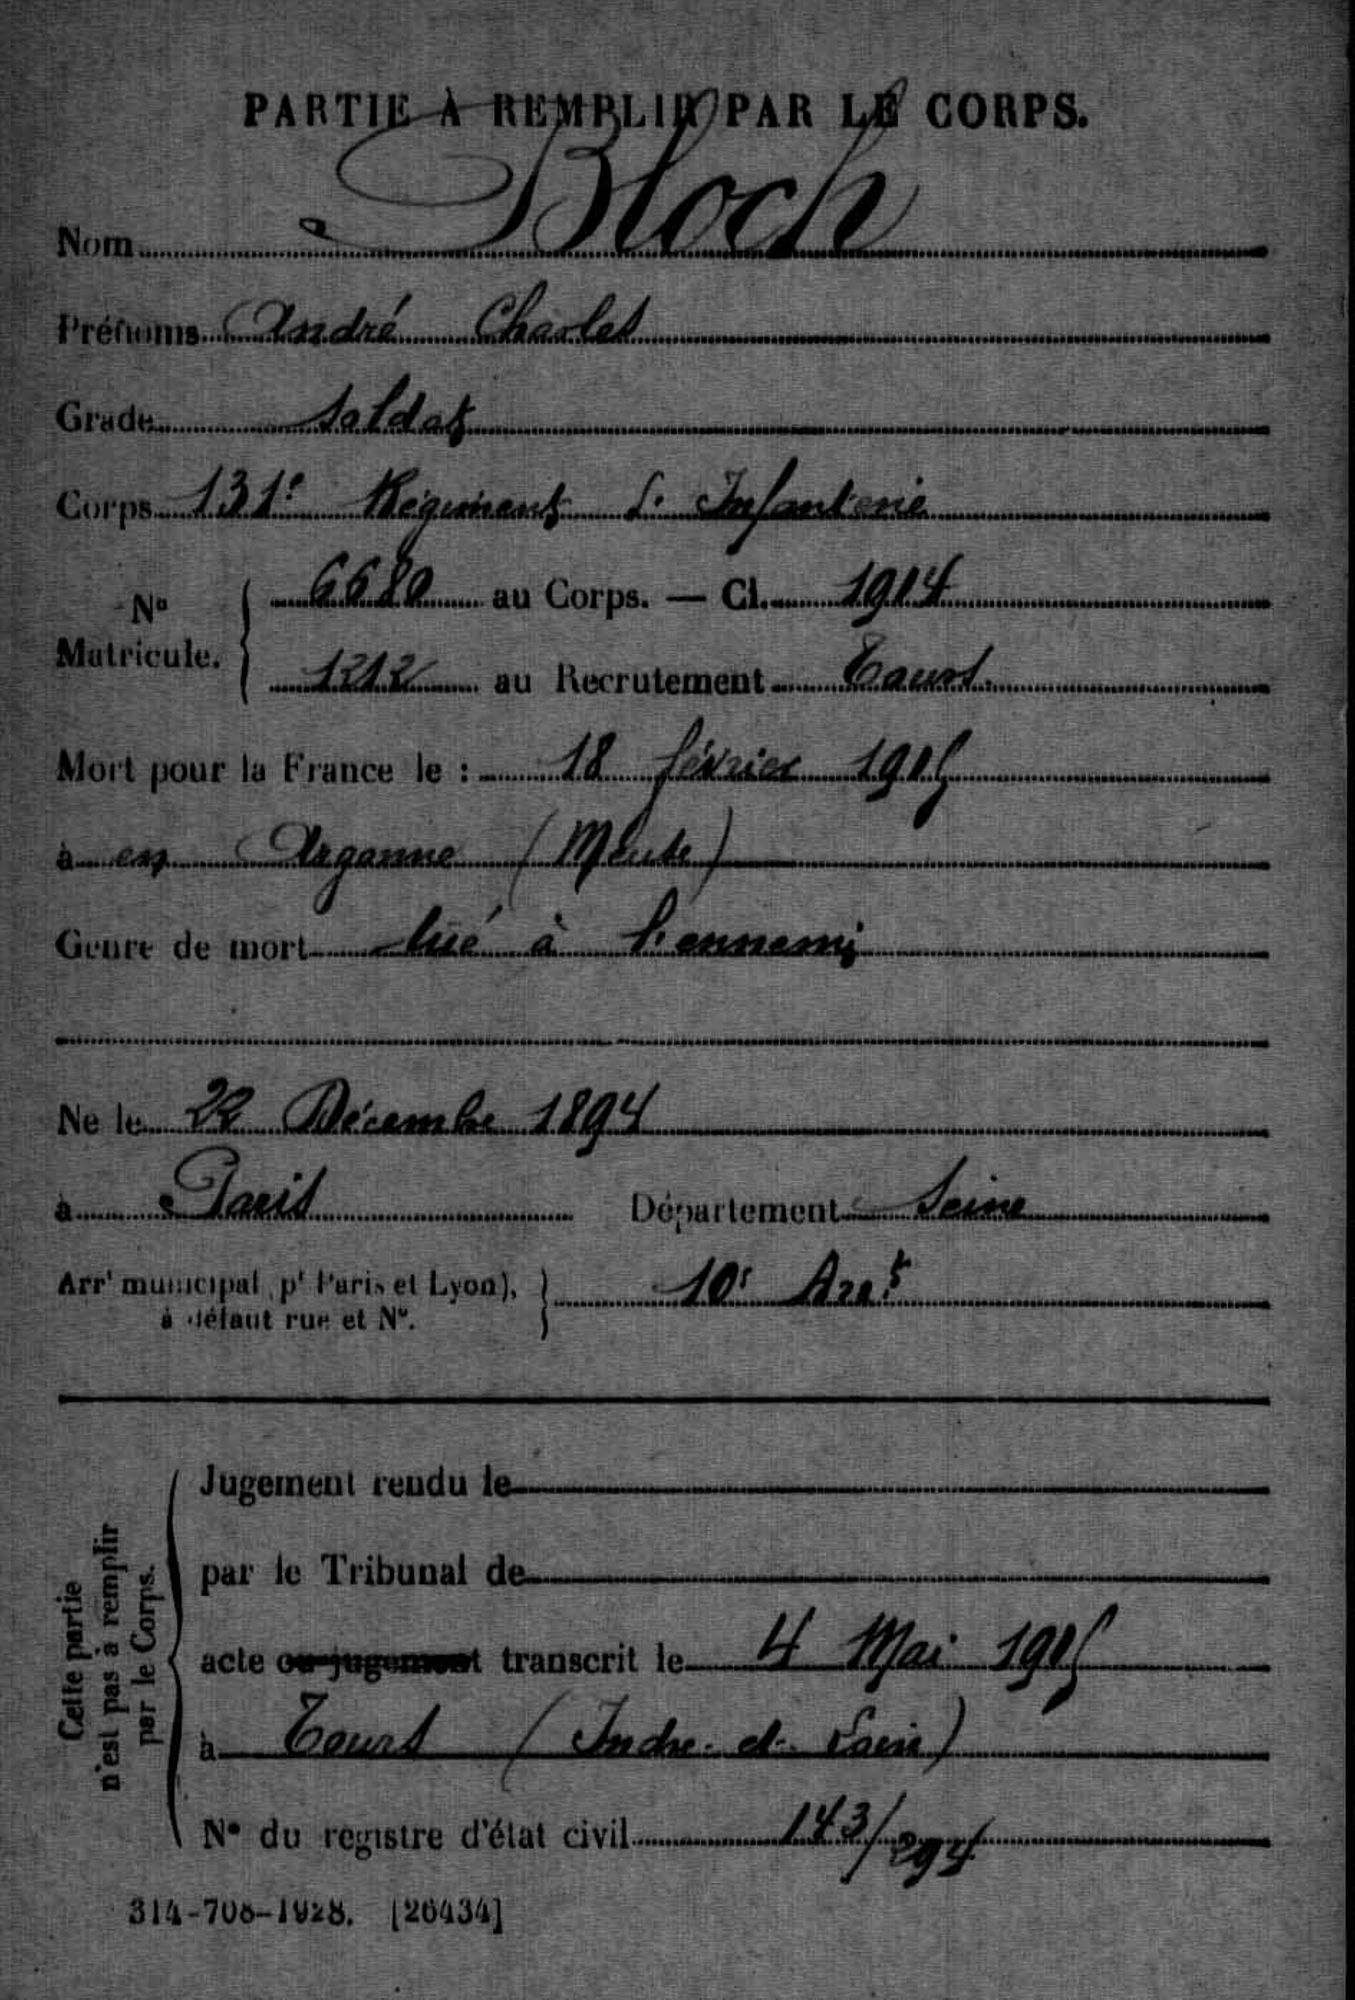 PARTIE À REMPLIR PAR LE CORPS.
Nom Bloch
Prénoms André Charles
Grade Soldat
Corps 131e Régiment d'Infanterie
No Matricule. { 6680 au Corps. — Cl. 1914
1212 au Recrutement Tours.
Mort pour la France le : 18 février 1915
à en Argonne (Meuse)
Genre de mort tué à l'ennemi
Né le 22 Décembre 1894
à Paris Département Seine
Arrt municipal (pr Paris et Lyon), à défaut rue et No. } 10e Arrt
Cette partie n'est pas à remplir par le Corps.
Jugement rendu le
par le Tribunal de
acte ou jugement transcrit le 4 Mai 1915
à Tours (Indre-et-Loire)
No du registre d'état civil 143/294
314-708-1928. [26434]